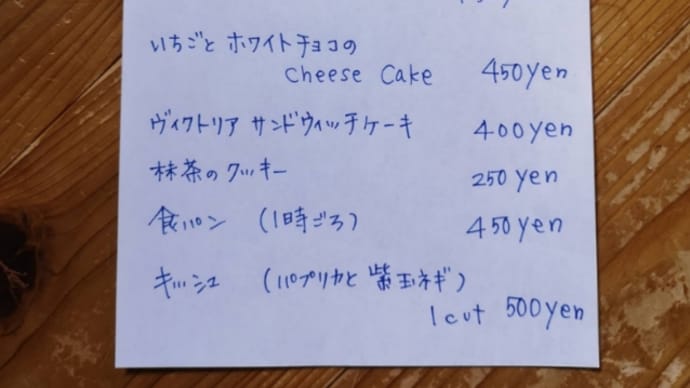 いちごと ホワイトチョコの
cheese cake 450yen
ヴィクトリア サンドウィッチケーキ 400yen
抹茶のクッキー 250yen
食パン (1時ごろ) 450yen
キッシュ (パプリカと 紫玉ネギ)
1cut 500yen